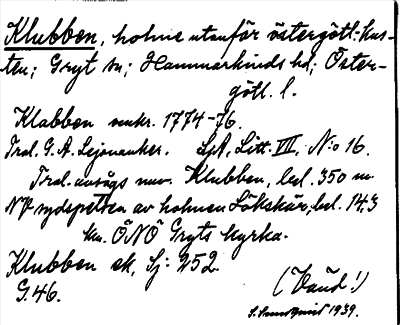 Klubben, holme utanför östergötl.-kus-
ten; Gryt sn; Hammarkinds hd; Öster-
götl. l.
Klabben omkr. 1774-76.
Trol. G. A. Lejonanker. SjA, Litt. VIII, N:o 16.
Trol. avsågs nuv. Klubben, bel. 350 m
NV sydspetsen av holmen Lökskär, bel. 14,3
km. ÖNÖ Gryts kyrka.
Klubben ek, Sj: 252.
G. 46.
(Vaud!)
1939.